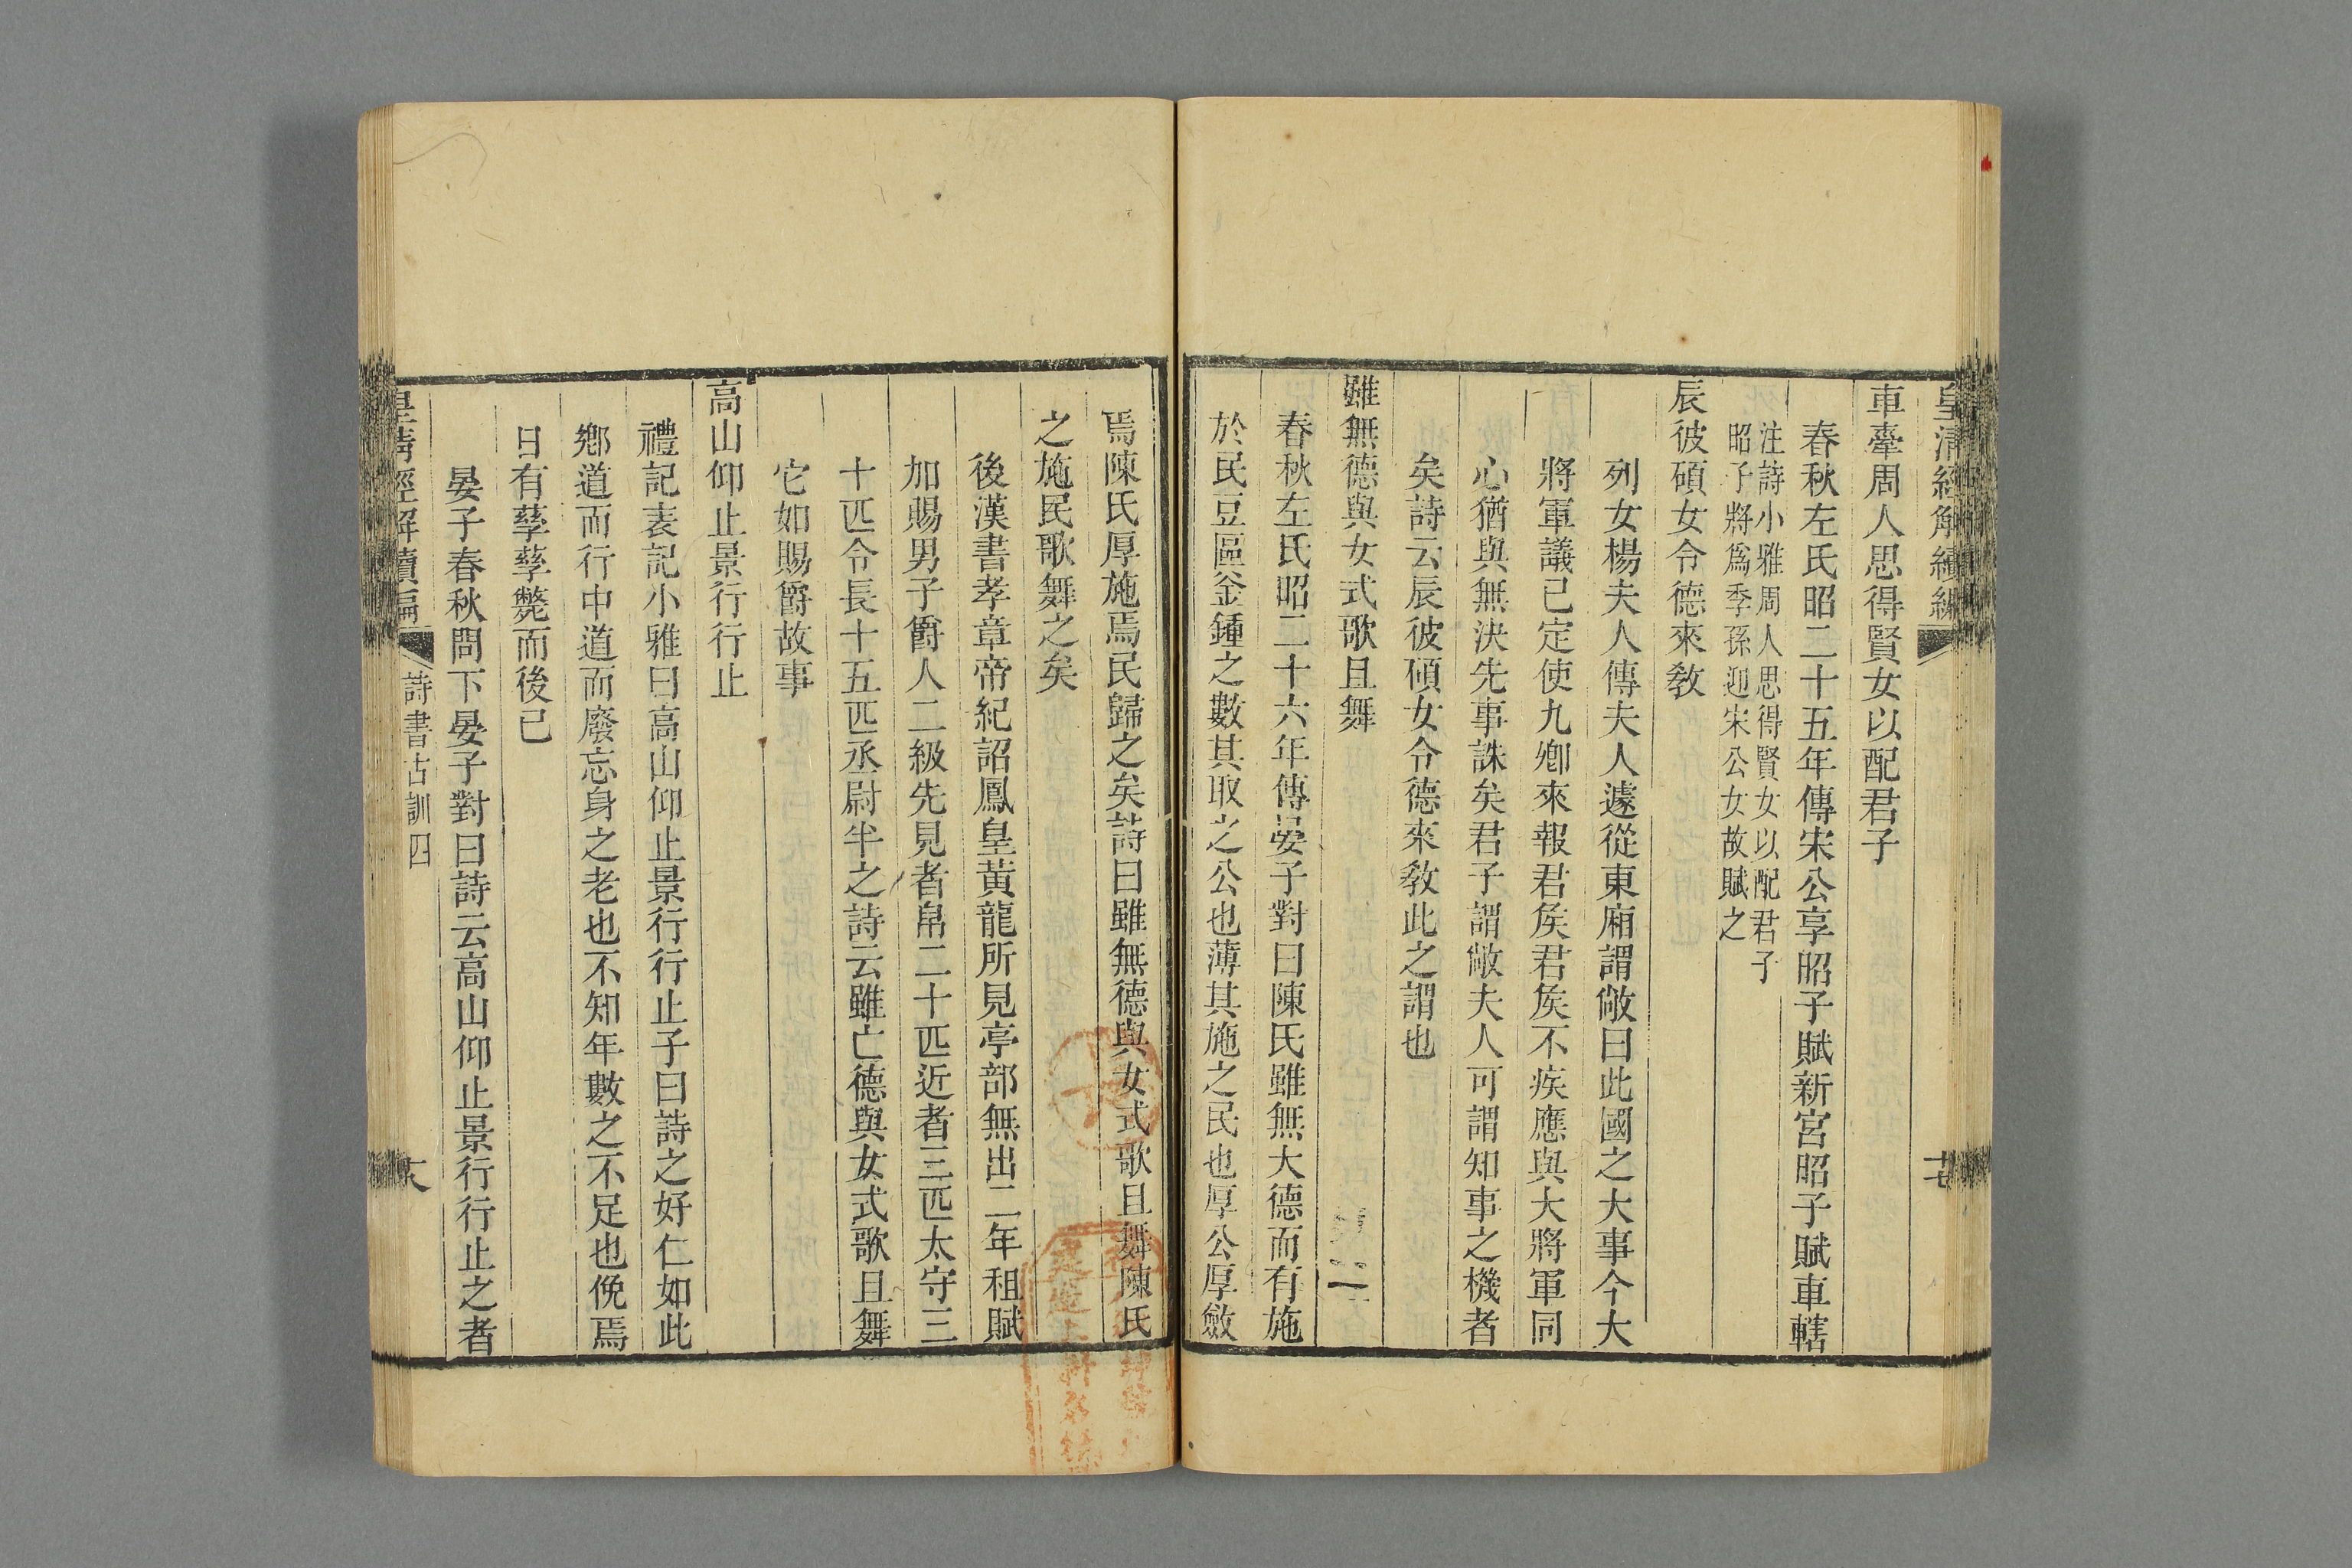 皇清經解續編
十七
車舝周人思得賢女以配君子
春秋左氏昭二十五年傳宋公享昭子賦新宮昭子賦車轄
注詩小雅周人思得賢女以配君子
昭子將爲季孫迎宋公女故賦之
辰彼碩女令德來敎
列女楊夫人傳夫人遽從東廂謂敞曰此國之大事今大
將軍議已定使九卿來報君矦君矦不疾應與大將軍同
心猶與無決先事誅矣君子謂敞夫人可謂知事之機者
矣詩云辰彼碩女令德來敎此之謂也
雖無德與女式歌且舞
春秋左氏昭二十六年傳晏子對曰陳氏雖無大德而有施
於民豆區釜鍾之數其取之公也薄其施之民也厚公厚斂
焉陳氏厚施焉民歸之矣詩曰雖無德與女式歌且舞陳氏
之施民歌舞之矣
後漢書孝章帝紀詔鳳皇黃龍所見亭部無出二年租賦
加賜男子爵人二級先見者帛二十匹近者三匹太守三
十匹令長十五匹丞尉半之詩云雖亡德與女式歌且舞
它如賜爵故事
高山仰止景行行止
禮記表記小雅曰高山仰止景行行止子曰詩之好仁如此
鄕道而行中道而廢忘身之老也不知年數之不足也俛焉
日有孳孳斃而後已
晏子春秋問下晏子對曰詩云高山仰止景行行止之者
皇清經解續編
詩書古訓四
十八